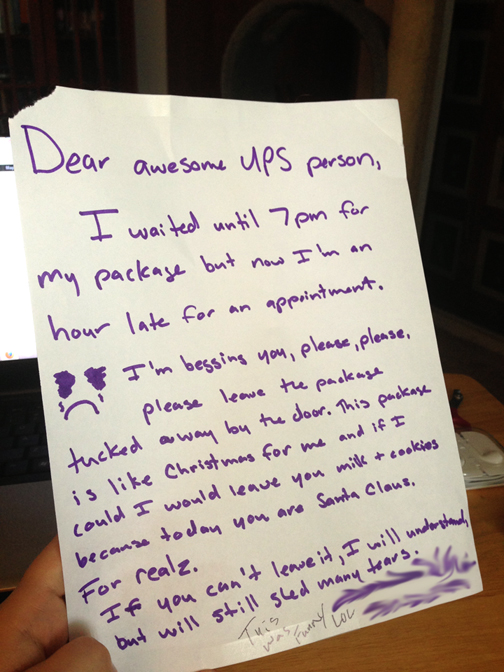 Dear awesome UPS person,
I waited until 7pm for
my package but now I'm an
hour late for an appointment.
I'm begging you, please, please,
please leave the package
tucked away by the door. This package
is like Christmas for me and if I
could I would leave you milk + cookies
because today you are Santa Claus.
For realz.
If you can't leave it, I will understand,
but will still shed many tears.
This was funny LOL